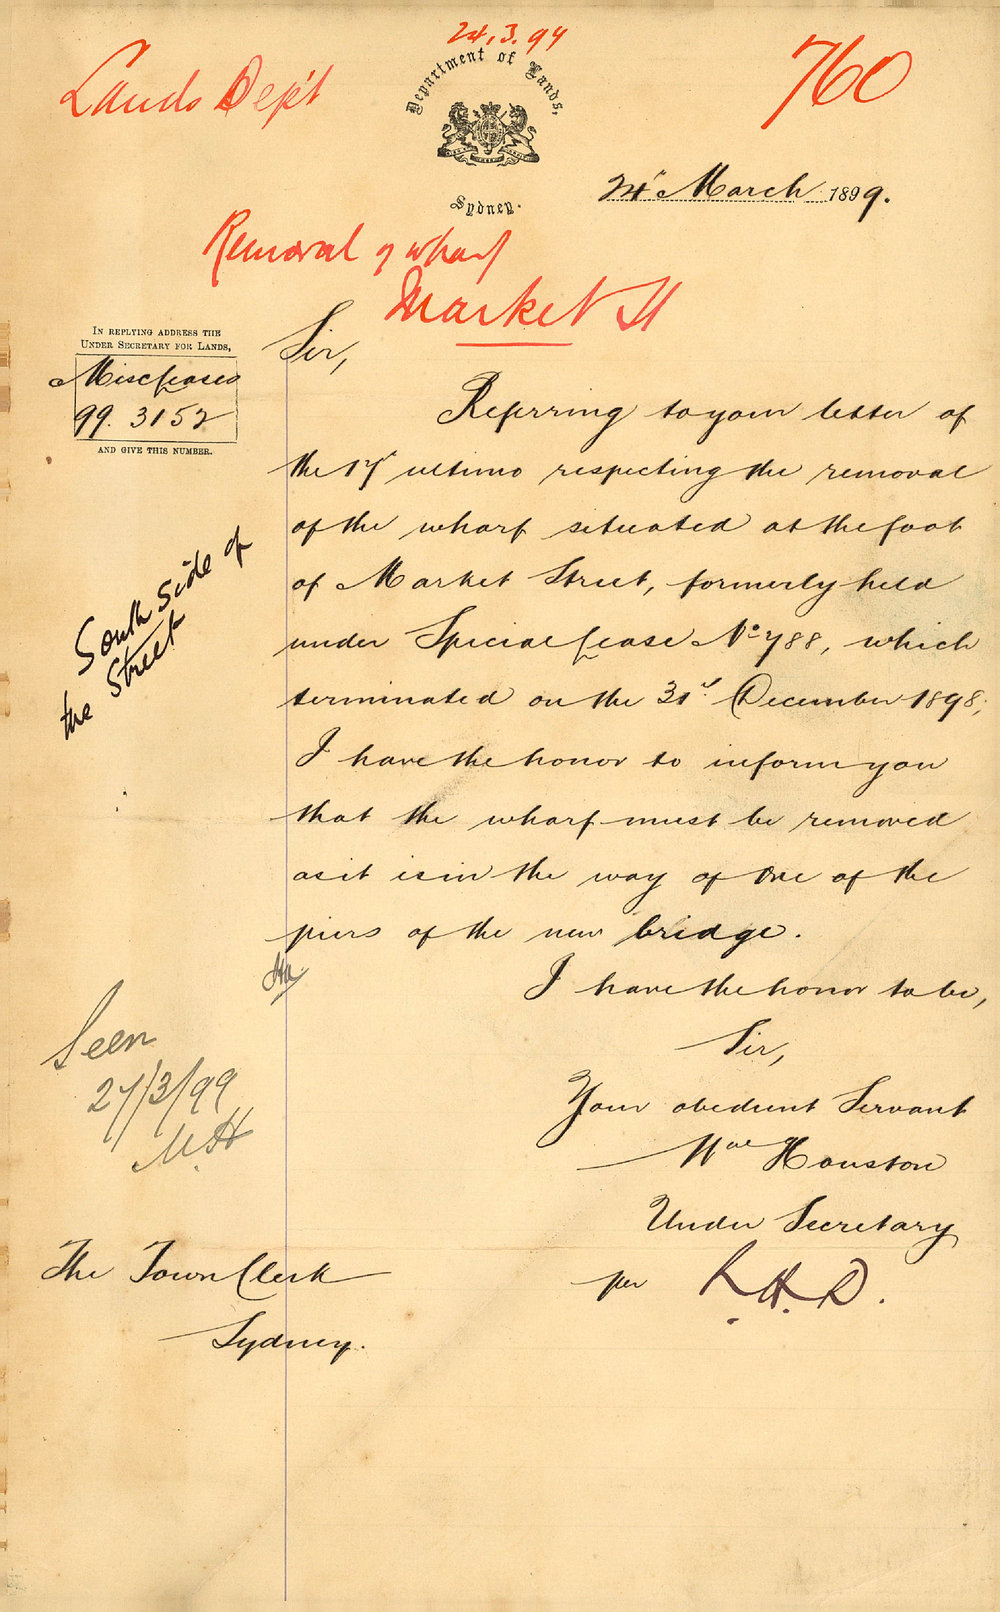 24.3.99
Lands Dep't
760
Department of Lands,
Sydney.
24" March 1899.
Removal of wharf
Market St
IN REPLYING ADDRESS THE
UNDER SECRETARY FOR LANDS,
Misc Leases
99. 3152
AND GIVE THIS NUMBER.
Sir,
Referring to your letter of
the 17" ultimo respecting the removal
of the wharf situated at the foot
of Market Street, formerly held
under Special Lease No 788, which
terminated on the 31st December 1898;
I have the honor to inform you
that the wharf must be removed
as it is in the way of one of the
piers of the new bridge.
South side of
the Street
I have the honor to be,
Sir,
Your obedient Servant
Wm Houston
Under Secretary
per R.H.D.
Seen
27/3/99
M.H
The Town Clerk
Sydney.